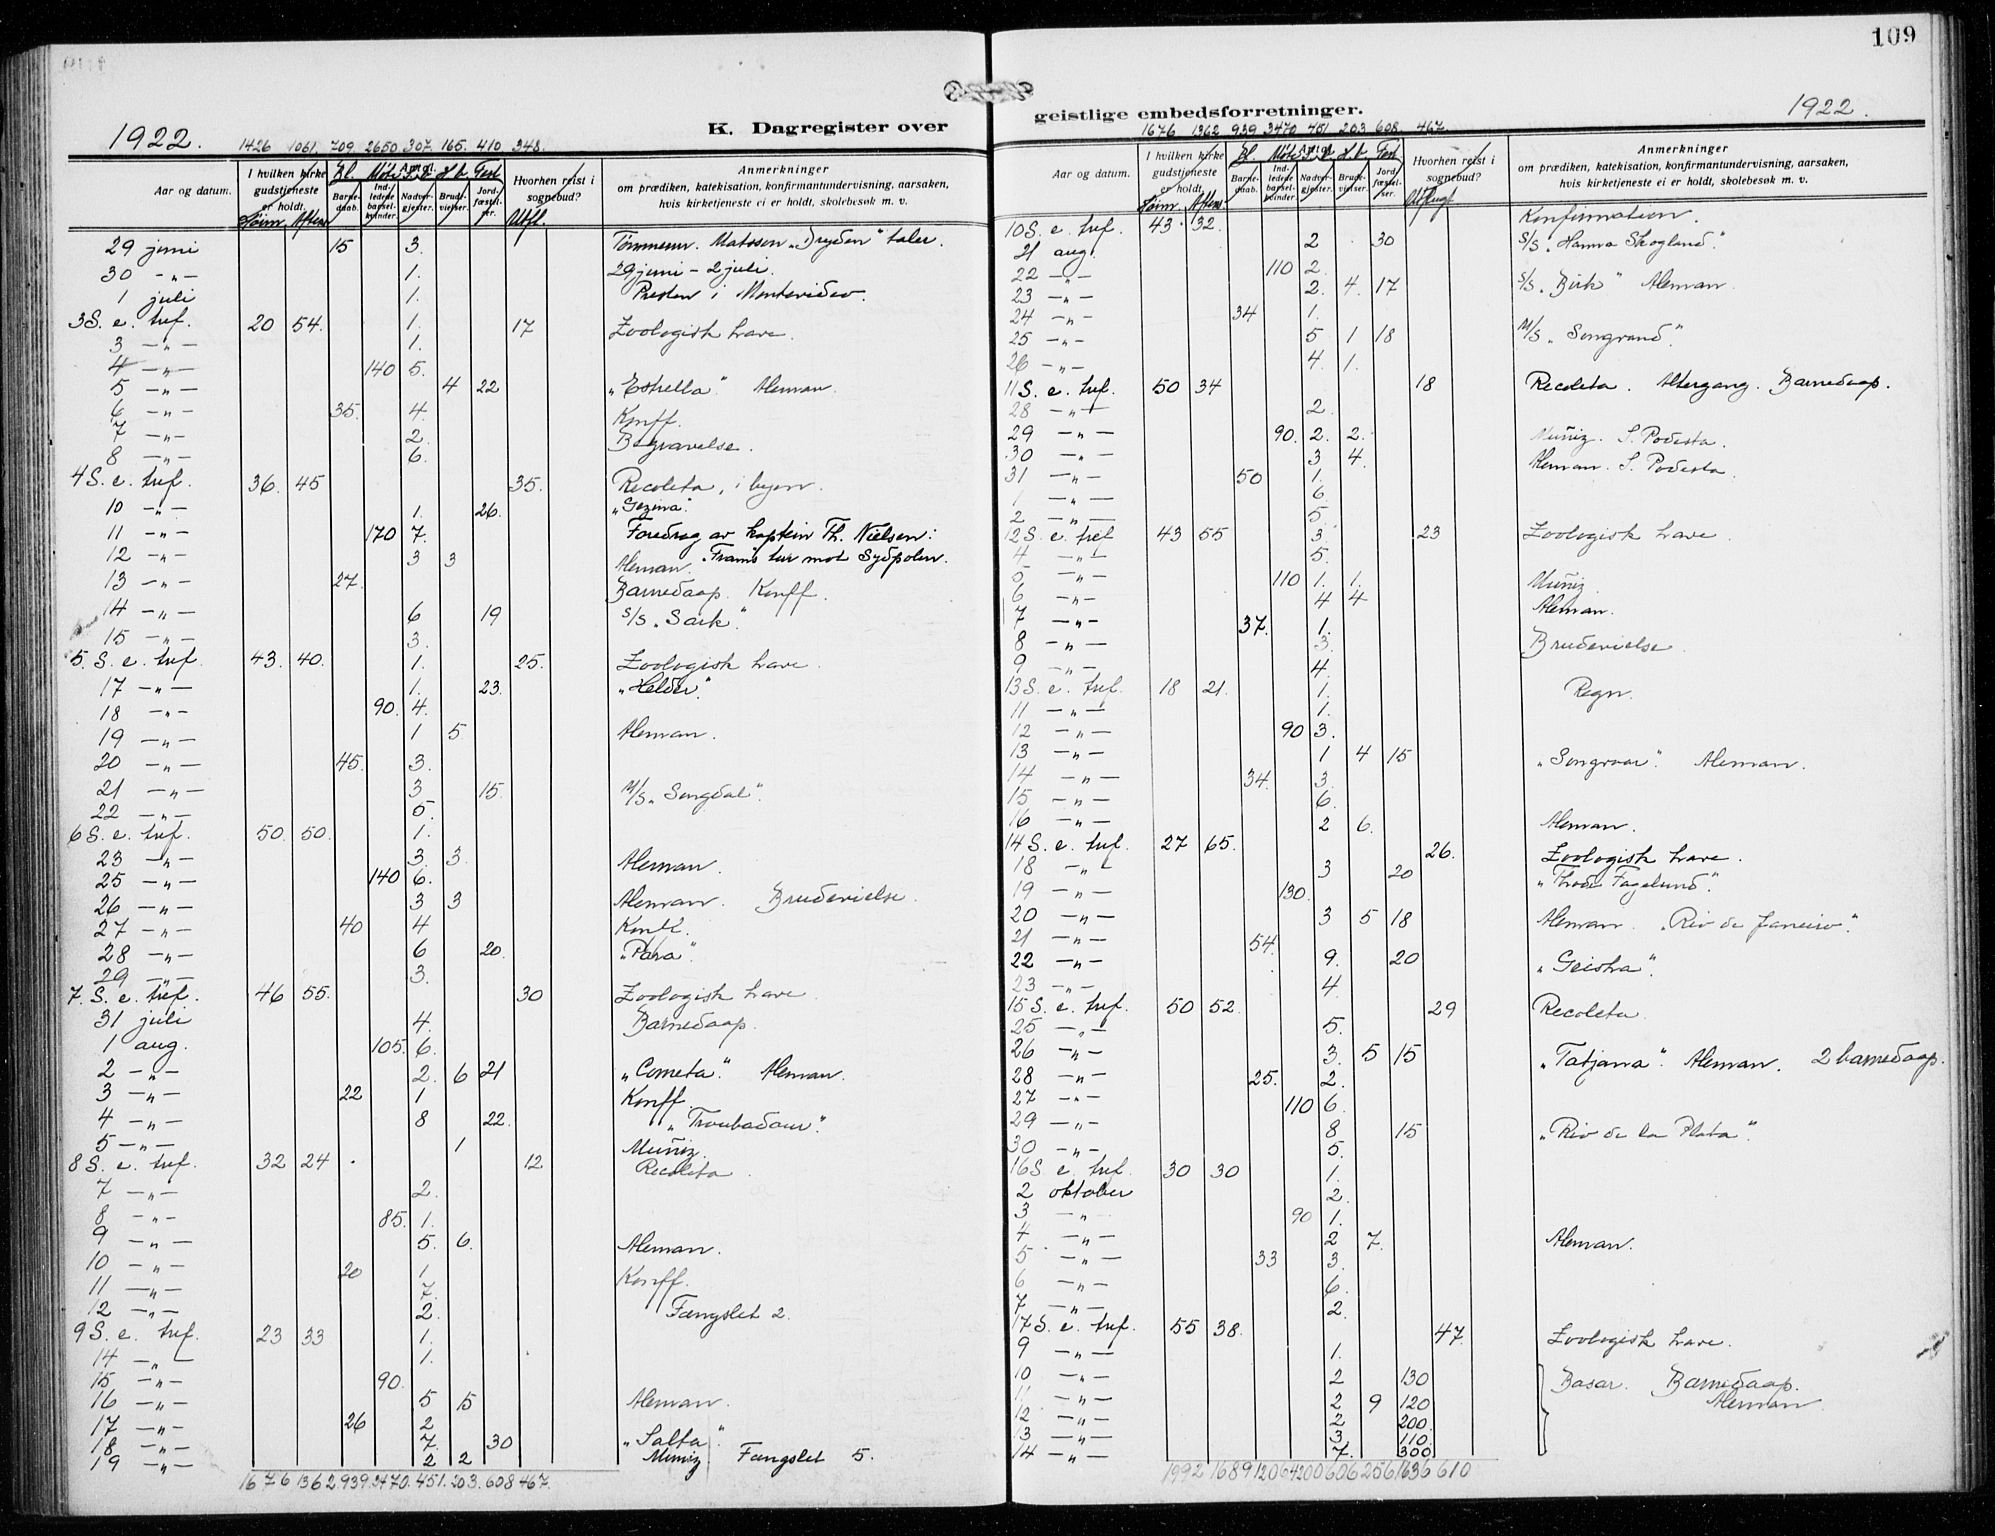 109
K. Dagregister over geistlige embedsforretninger.
1922.
1426 1061. 709. 2650. 307. 165. 410 348.
Aar og datum.
I hvilken kirke gudstjeneste er holdt.
Barnedaab.
Indledede barselkvinder.
Antal
Nadvergjester.
Brudevielser.
Jordfæstelser.
Hvorhen reist i sognebud?
Anmerkninger
om prædiken, katekisation, konfirmantundervisning, aarsaken, hvis kirketjeneste ei er holdt, skolebesøk m. v.
Møte Fest
Aften Utfl.
29 juni 15 3. Tømmerm. Matssen „Dryden" taler.
30 -„- 1. 29 juni - 2 juli.
1 juli 1. Presten i Montevideo.
3 S. e. tref. 20 54. 1. 17 Zoologisk have.
3 -„- 1.
4 -„- 140 5.
5 -„- 4 22 „Estrella". Aleman.
6 -„- 35. 4. Konff.
7 -„- 2. Begravelse.
8 -„- 6.
4 S. e. tref. 36. 45 35. Recoleta, i byen.
10 -„- 1. 26. „Gezina".
11 -„- 170 7. Foredrag av kaptein Th. Nielsen:
12 -„- 3 3 Aleman. Frams tur mot Sydpolen.
13 -„- 27. Barnedaap. Konff.
14 -„- 6 19 S/S „Sark".
15 -„- 3.
5. S. e. tref. 43. 40. 1. 25. Zoologisk have.
17 -„- 1. 23. „Helder".
18 -„- 90. 4.
19 -„- 1 5 Aleman.
20 -„- 45. 3.
21 -„- 3 15. M/S „Songdal".
22 -„- 5.
6 S. e. tref. 50. 50. 1.
23 -„- 3. 3. Aleman.
25 -„- 140 6.
26 -„- 3 3 Aleman. Brudevielse.
27 -„- 40 4 Konff.
28 -„- 6 20. „Para".
29 -„- 3.
7. S. e. tref. 46 55. 30 Zoologisk have.
31 juli 4. Barnedaap.
1 aug. 105. 6.
2 -„- 2. 6 21 „Cometa". Aleman.
3 -„- 22 1 Konff.
4 -„- 8 22. „Troubadour".
5 -„- 1 Muñiz.
8 S. e. tref. 32 24 12 Recoleta
7 -„- 2.
8 -„- 85. 1.
9 -„- 5. 6. Aleman.
10 -„- 20 1 Konff.
11 -„- 7.
12 -„- 2. Fængslet 2.
9 S. e. tref. 23 33 1.
14 -„- 1.
15 -„- 90.
16 -„- 5 15 Aleman.
17 -„- 26 2
18 -„- 7. 30 „Salta".
19 -„- 2 2 Muniz Fængslet 5.
1676 1362. 939. 3470. 451. 203. 608 467.
1922.
1676 1362 939 3470 451 203 608. 467.
Aar og datum.
I hvilken kirke gudstjeneste er holdt.
Barnedaab.
Indledede barselkvinder.
Antal
Nadvergjester.
Brudevielser.
Jordfæstelser.
Hvorhen reist i sognebud?
Anmerkninger
om prædiken, katekisation, konfirmantundervisning, aarsaken, hvis kirketjeneste ei er holdt, skolebesøk m. v.
Møte Fest
Aften Utflugt
10 S. e. tref. 43. 32. Konfirmation.
21 aug. 2 30 S/S „Hanna Skogland".
22 -„- 110 2.
23 -„- 2. 4. 17 S/S „Birk" Aleman.
24 -„- 34 1.
25 -„- 5 1 18 M/S „Songrand".
26 -„- 4. 1.
11 S. e. tref. 50 34 18 Recoleta. Altergang. Barnedaap.
28 -„- 2.
29 -„- 90. 2. 2. Muñiz. S. Podesta.
30 -„- 3 4. Aleman. S. Podesta.
31 -„- 50 1.
1 -„- 6.
2 -„- 5.
12 S. e. tref 43 55 3. 23 Zoologisk have.
4 -„- 5.
5 -„- 110 1. 1. Muñiz.
6 -„- 4 4 Aleman.
7 -„- 37. 1.
8 -„- 3. Brudevielse.
9 -„- 4.
13 S. e. tref. 18 21. 1. Regn.
11 -„- 1.
12 -„- 90 3.
13 -„- 1 4 15 „Songvaar". Aleman.
14 -„- 34. 3.
15 -„- 6.
16 -„- 2 6. Aleman.
14 S. e. tref. 27 65. 26. Zoologisk have.
18 -„- 3 20 „Thode Fagelund".
19 -„- 130.
20 -„- 3 5 18 Aleman. „Rio de Janeiro".
21 -„- 54.
22 -„- 9. 20 „Geisha".
23 -„- 4.
15 S. e. tref. 50 52. 29 Recoleta.
25 -„- 5.
26 -„- 3. 5 15 „Tatjana". Aleman. 2 barnedaap.
28 -„- 25. 2.
27 -„- 110 6.
29 -„- 8 15 „Rio de la Plata".
30 -„- 5.
16 S. e. tref. 30 30 1.
2 oktober 2.
3 -„- 90 1.
4 -„- 2 7. Aleman.
5 -„- 33 3.
6 -„- 6.
7 -„- 2.
17 S. e. tref. 55 38. 47. Zoologisk have.
9 -„- 1.
10 -„- 2 130 Basar. Barnedaap.
11 -„- 2 9 120 Aleman.
12 -„- 2 200.
13 -„- 3 110
14 -„- 7. 300
1992 1689 1206 4200 606 256 1636 610